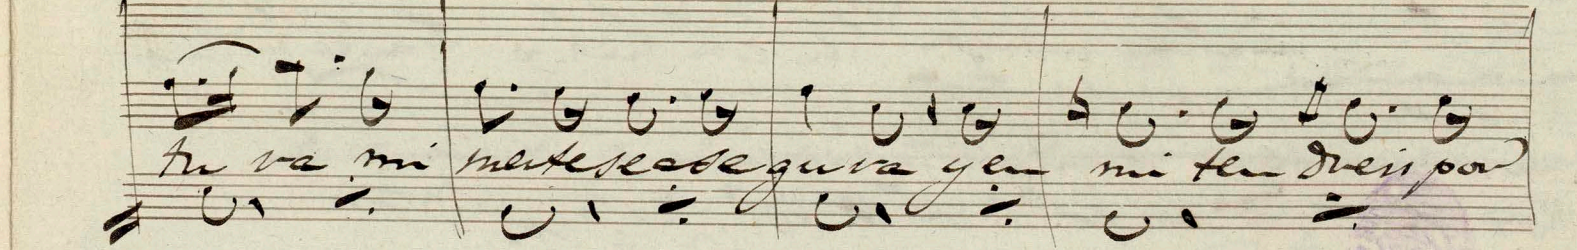 tu va mi suerte se asegura y en mi ten dreis por